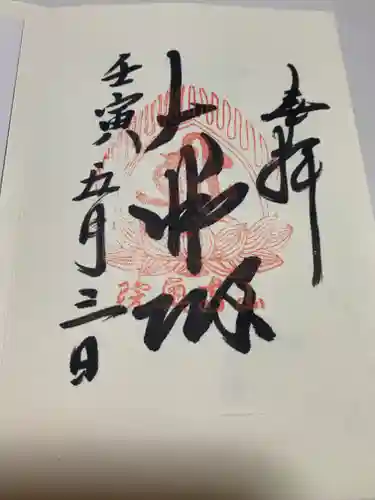 奉拝
大悲殿
壬寅五月三日